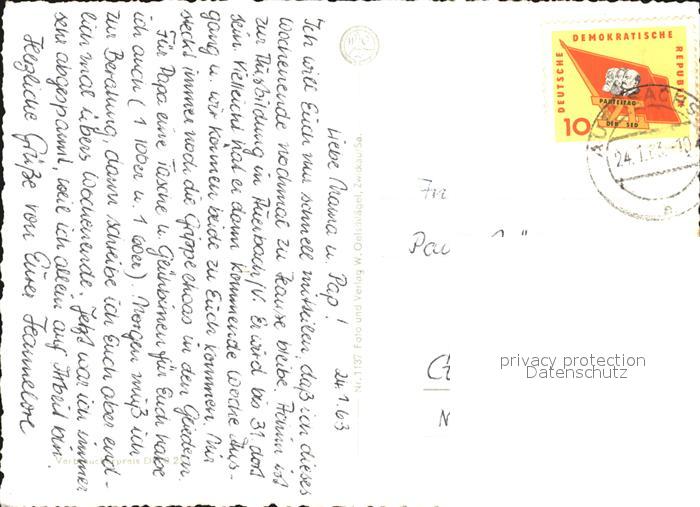 24.1.63
Liebe Mama u. Pap!
Ich will Euch nur schnell mitteilen, daß ich dieses
Wochenende nochmal zu Hause bleibe. ist
zur Ausbildung in Auerbach/V. Er wird bis 31. dort
sein. Vielleicht hat er dann kommende Woche Aus-
gang u. wir können beide zu Euch kommen. Mir
steckt immer noch die Grippe etwas in den Gliedern.
Für Papa eine Tasche u. Glühbirnen für Euch habe
ich auch (1 100er u. 1 60er). Morgen muß ich
zur Beratung, dann schreibe ich Euch aber end-
lich mal übers Wochenende. Jetzt war ich immer
sehr abgespannt, weil ich allein auf Arbeit bin.
Herzliche Grüße von Eurer Hannelore
Nr. 1137 Foto und Verlag W. Zwickau Sa.
Verbraucherpreis
DEUTSCHE DEMOKRATISCHE REPUBLIK
PARTEITAG
DER SED
10
24.1.63.-10
Pau
privacy protection
Datenschutz